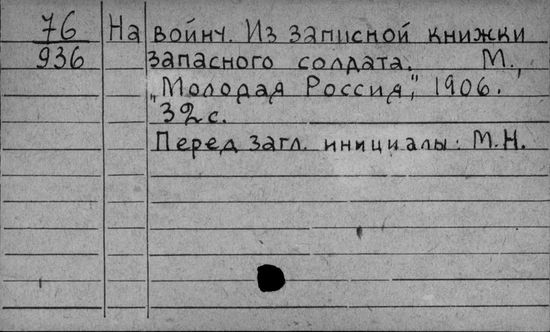 76 На войну. Из записной книжки
936 запасного солдата. М.,
"Молодая Россия", 1906.
32 с.
Перед загл. инициалы: М.Н.